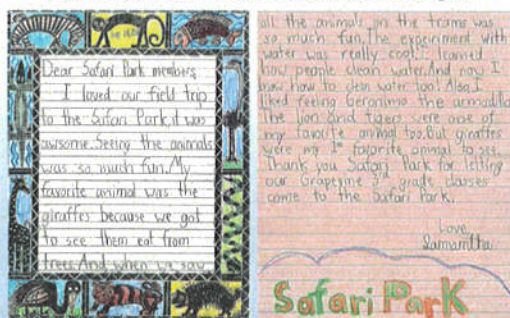 Dear Safari Park members,
I loved our field trip
to the Safari Park, it was
awsome. Seeing the animals
was so much fun. My
favorite animal was the
giraffes because we got
to see them eat from
trees. And when we saw
all the animals on the trams was
so much fun. The experiment with
water was really cool. I learned
how people clean water. And now I
know how to clean water too! Also I
liked feeling Geronimo the armadillo
the lion and tigers were one of
my favorite animal too. But giraffes
were my 1st favorite animal to see.
Thank you Safari Park for letting
our Grapevine 3rd grade classes
come to the Safari Park.
Love,
Samantha
Safari Park